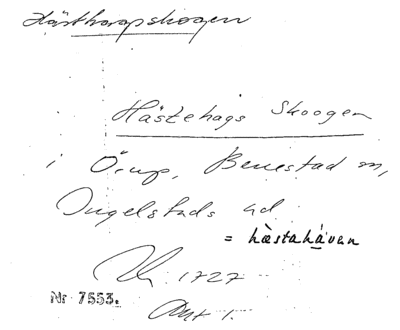 Hästhagsskogen
Hästehags Skoogen
i Örup, Benestad sn,
Ingelstads hd
= hästahávan
1727
Nr 7553.
Akt 1.